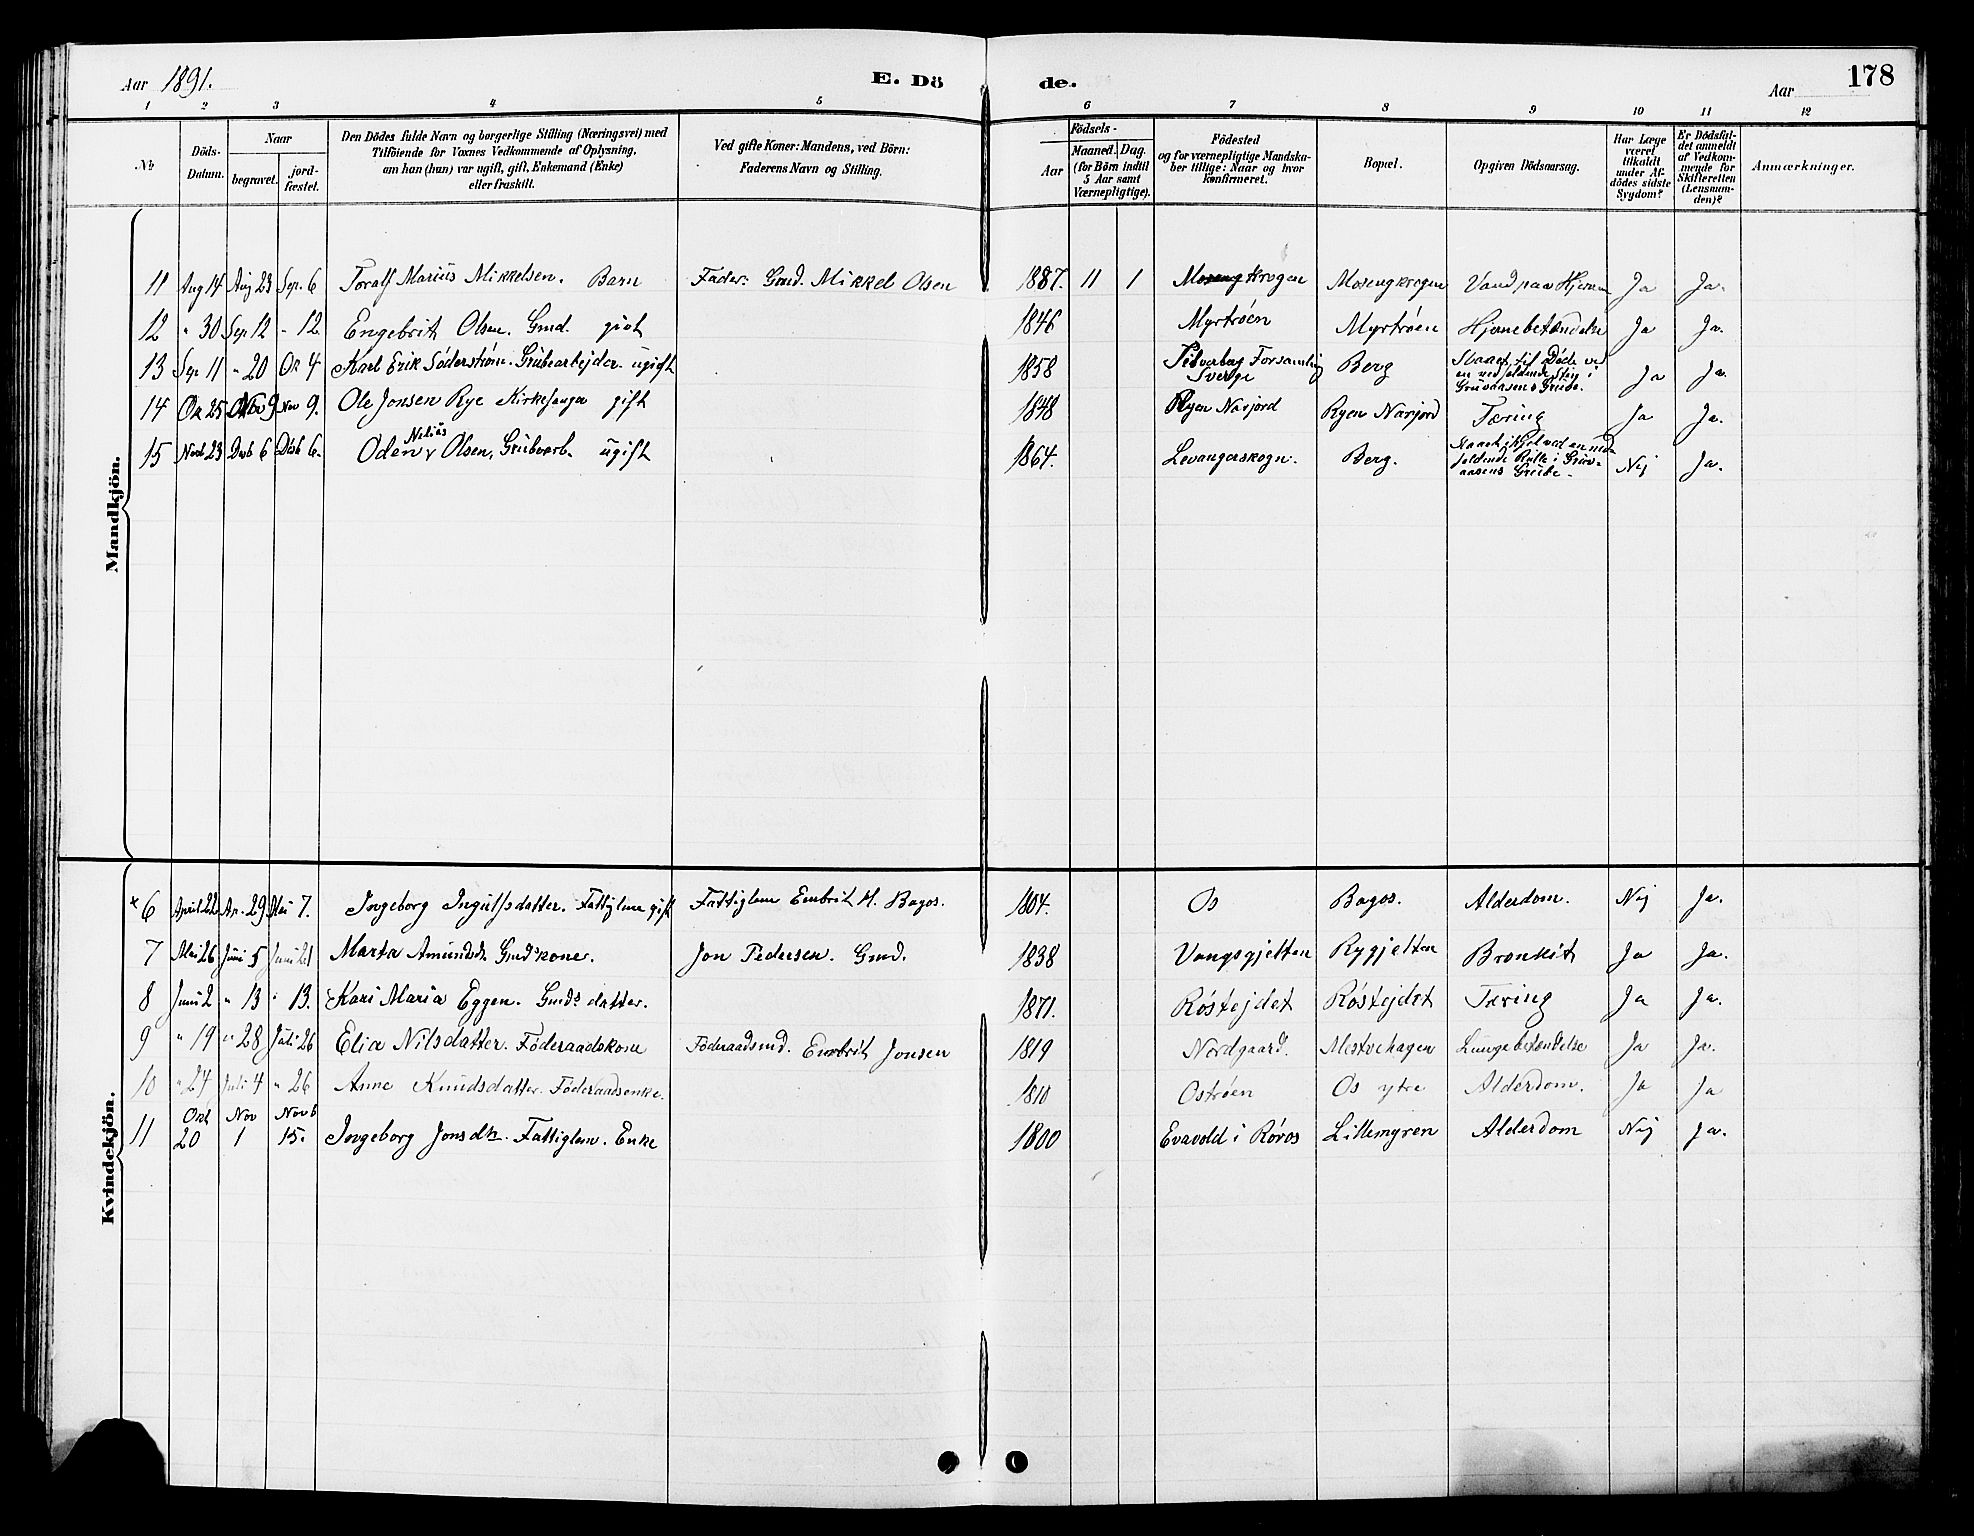 Aar 1891.
E. Dö
de.
Aar
178
1 2 3 4 5 6 7 8 9 10 11 12
No
Döds-Datum.
Naar
begravet.
jordfæstet.
Den Dödes fulde Navn og borgerlige Stilling (Næringsvei) med
Tilföiende for Voxnes Vedkommende af Oplysning,
om han (hun) var ugift, gift, Enkemand (Enke)
eller fraskilt.
Ved gifte Koner: Mandens, ved Börn:
Faderens Navn og Stilling.
Födsels-
Aar
Maaned. Dag.
(for Börn indtil
5 Aar samt
Værnepligtige).
Födested
og for værnepligtige Mandska-
ber tillige: Naar og hvor
konfirmeret.
Bopæl.
Opgiven Dödsaarsag.
Har Læge
været
tilkaldt
under Af-
dödes sidste
Sygdom?
Er Dödsfal-
det anmeldt
af Vedkom-
mende for
Skifteretten
(Lensman-
den)?
Anmærkninger.
Mandkjön.
11 Aug 14 Aug 23 Sep. 6 Toralf Marius Mikkelsen. Barn Fader: Gmd. Mikkel Olsen 1887. 11 1 Mosengkrogen Mosengkrogen Vand paa Hjernen Ja Ja.
12 " 30 Sep 12 " 12 Engebrit Olsen. Gmd. gift 1846 Myrtrøen Myrtrøen Hjernebetændelse Ja Ja.
13 Sep 11 " 20 Ok 4 Karl Erik Söderstrøm. Grübearbejder ugift 1858 Silverberg Forsamling Sverge Berg Slaaet til Døde ved en nedfaldende Sten i Grüvaasens Grübe. Ja Ja.
14 Ok 25 Nov 9 Nov 9. Ole Jonsen Rye Kirkesanger gift 1848 Ryen Narjord Ryen Narjord Tæring Ja Ja
15 Novb 23 Desb 6 Desb 6. Oden Nelius Olsen, Grübearb. ugift 1864. Levangerskogn. Berg. Slaaet ihjel ved en nedfaldende Rulle i Grüvaasens Grübe. Nej Ja.
Kvindekjön.
× 6 April 22 Ap. 29 Mai 7. Ingeborg Ingulfsdatter. Fattiglem gift Fattiglem Embrit H. Bagos. 1804. Os Bagos. Alderdom. Nej Ja.
7 Mai 26 Juni 5 Juni 21 Marta Amundsd. Gmdskone. Jon Pedersen. Gmd. 1838 Vangsgjelten Rygjelten Bronkit Ja Ja.
8 Juni 2 " 13 " 13. Kari Maria Eggen. Gmds datter. 1871. Røstejdet Røstejdet Tæring Ja Ja.
9 " 19 " 28 Juli 26 Elia Nilsdatter. Føderaadskone Føderaadsmd. Embrit Jonsen 1819 Nordgaard. Mestvehagen Lungebetændelse Ja Ja.
10 " 24 Juli 4 " 26 Anne Knudsdatter. Føderaadsenke. 1810 Ostrøen Os ytre Alderdom. Ja Ja
11 Okt 20 Nov 1 Novb 15. Ingeborg Jonsdtr. Fattiglem. Enke 1800 Evavold i Røros Lillemyren Alderdom Nej Ja.